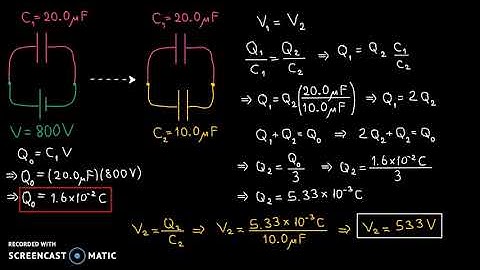 C₁ = 20.0μF
V = 800V
Q₀ = C₁V
⇒ Q₀ = (20.0μF)(800V)
⇒ Q₀ = 1.6×10⁻² C
C₁ = 20.0μF
C₂ = 10.0μF
V₁ = V₂
Q₁/C₁ = Q₂/C₂ ⇒ Q₁ = Q₂ C₁/C₂
⇒ Q₁ = Q₂(20.0μF/10.0μF) ⇒ Q₁ = 2Q₂
Q₁ + Q₂ = Q₀ ⇒ 2Q₂ + Q₂ = Q₀
⇒ Q₂ = Q₀/3 ⇒ Q₂ = 1.6×10⁻² C/3
⇒ Q₂ = 5.33×10⁻³ C
V₂ = Q₂/C₂ ⇒ V₂ = 5.33×10⁻³ C/10.0μF ⇒ V₂ = 533V
RECORDED WITH
SCREENCAST MATIC